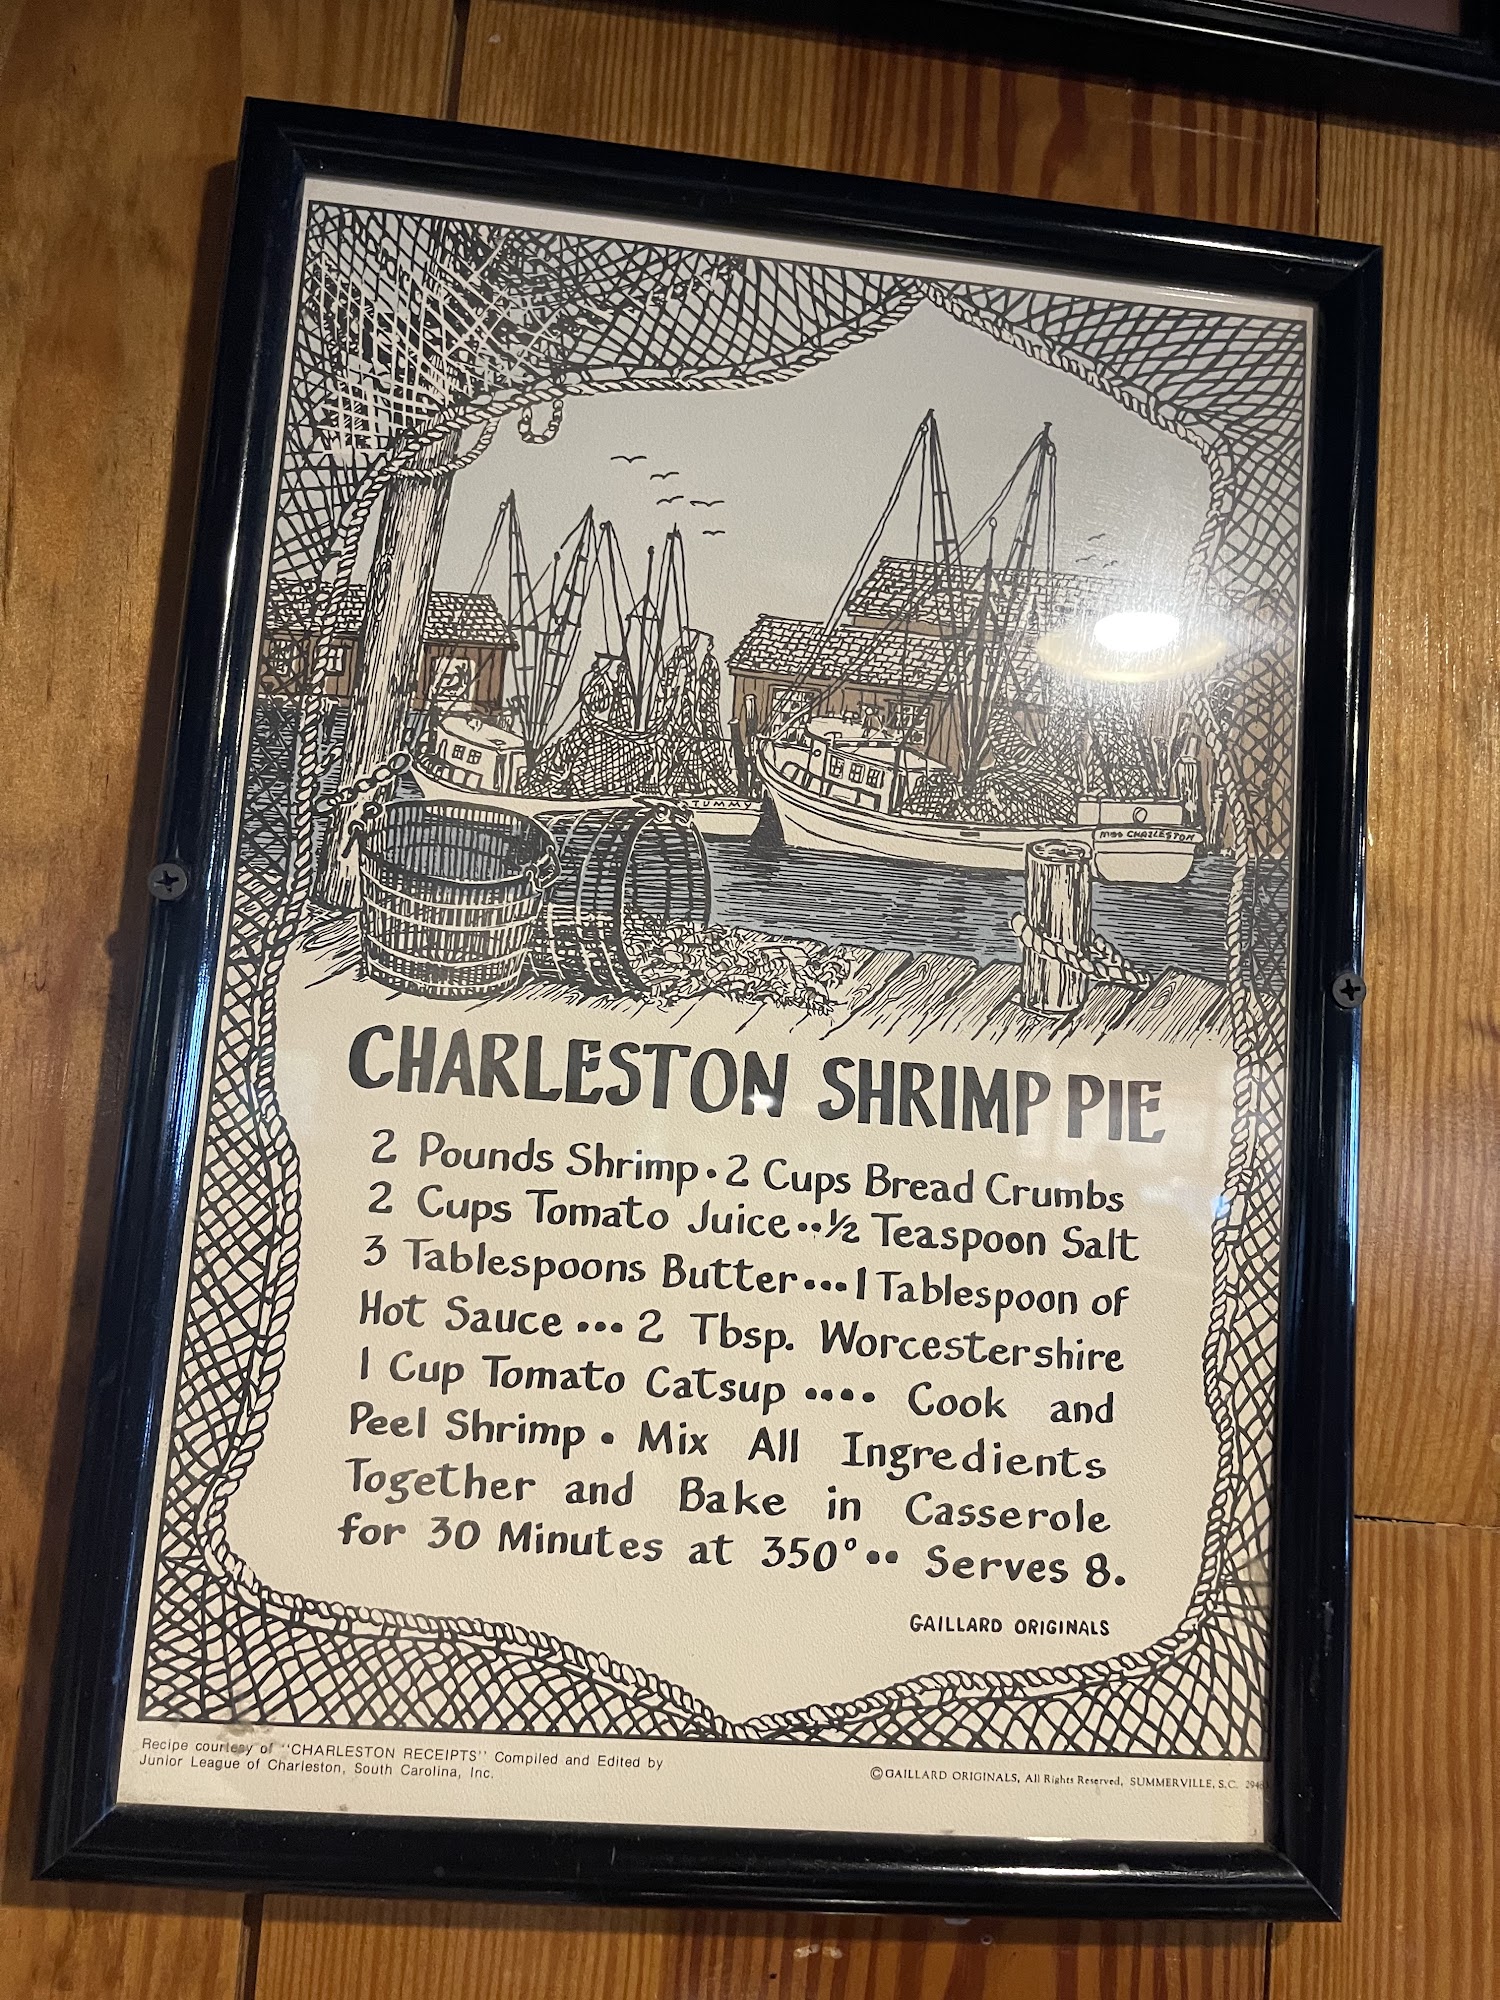 TUMMY
MISS CHARLESTON
CHARLESTON SHRIMP PIE
2 Pounds Shrimp • 2 Cups Bread Crumbs
2 Cups Tomato Juice •• ½ Teaspoon Salt
3 Tablespoons Butter ••• 1 Tablespoon of
Hot Sauce ••• 2 Tbsp. Worcestershire
1 Cup Tomato Catsup •••• Cook and
Peel Shrimp • Mix All Ingredients
Together and Bake in Casserole
for 30 Minutes at 350° •• Serves 8.
GAILLARD ORIGINALS
Recipe courtesy of "CHARLESTON RECEIPTS" Compiled and Edited by
Junior League of Charleston, South Carolina, Inc.
©GAILLARD ORIGINALS, All Rights Reserved, SUMMERVILLE, S.C.